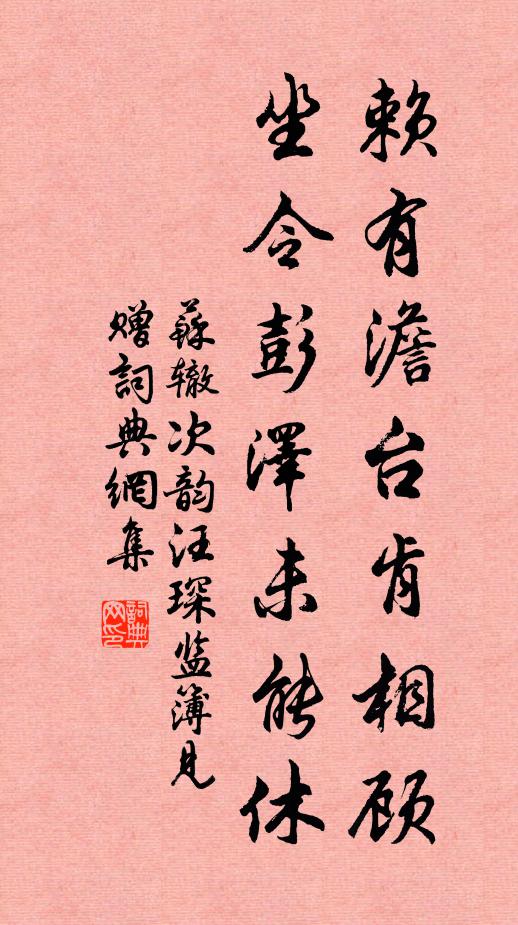 赖有澹台肯相顾
坐令彭泽未能休
蘇辙次韵汪琛监簿见
赠詞典網集
詞典
网印